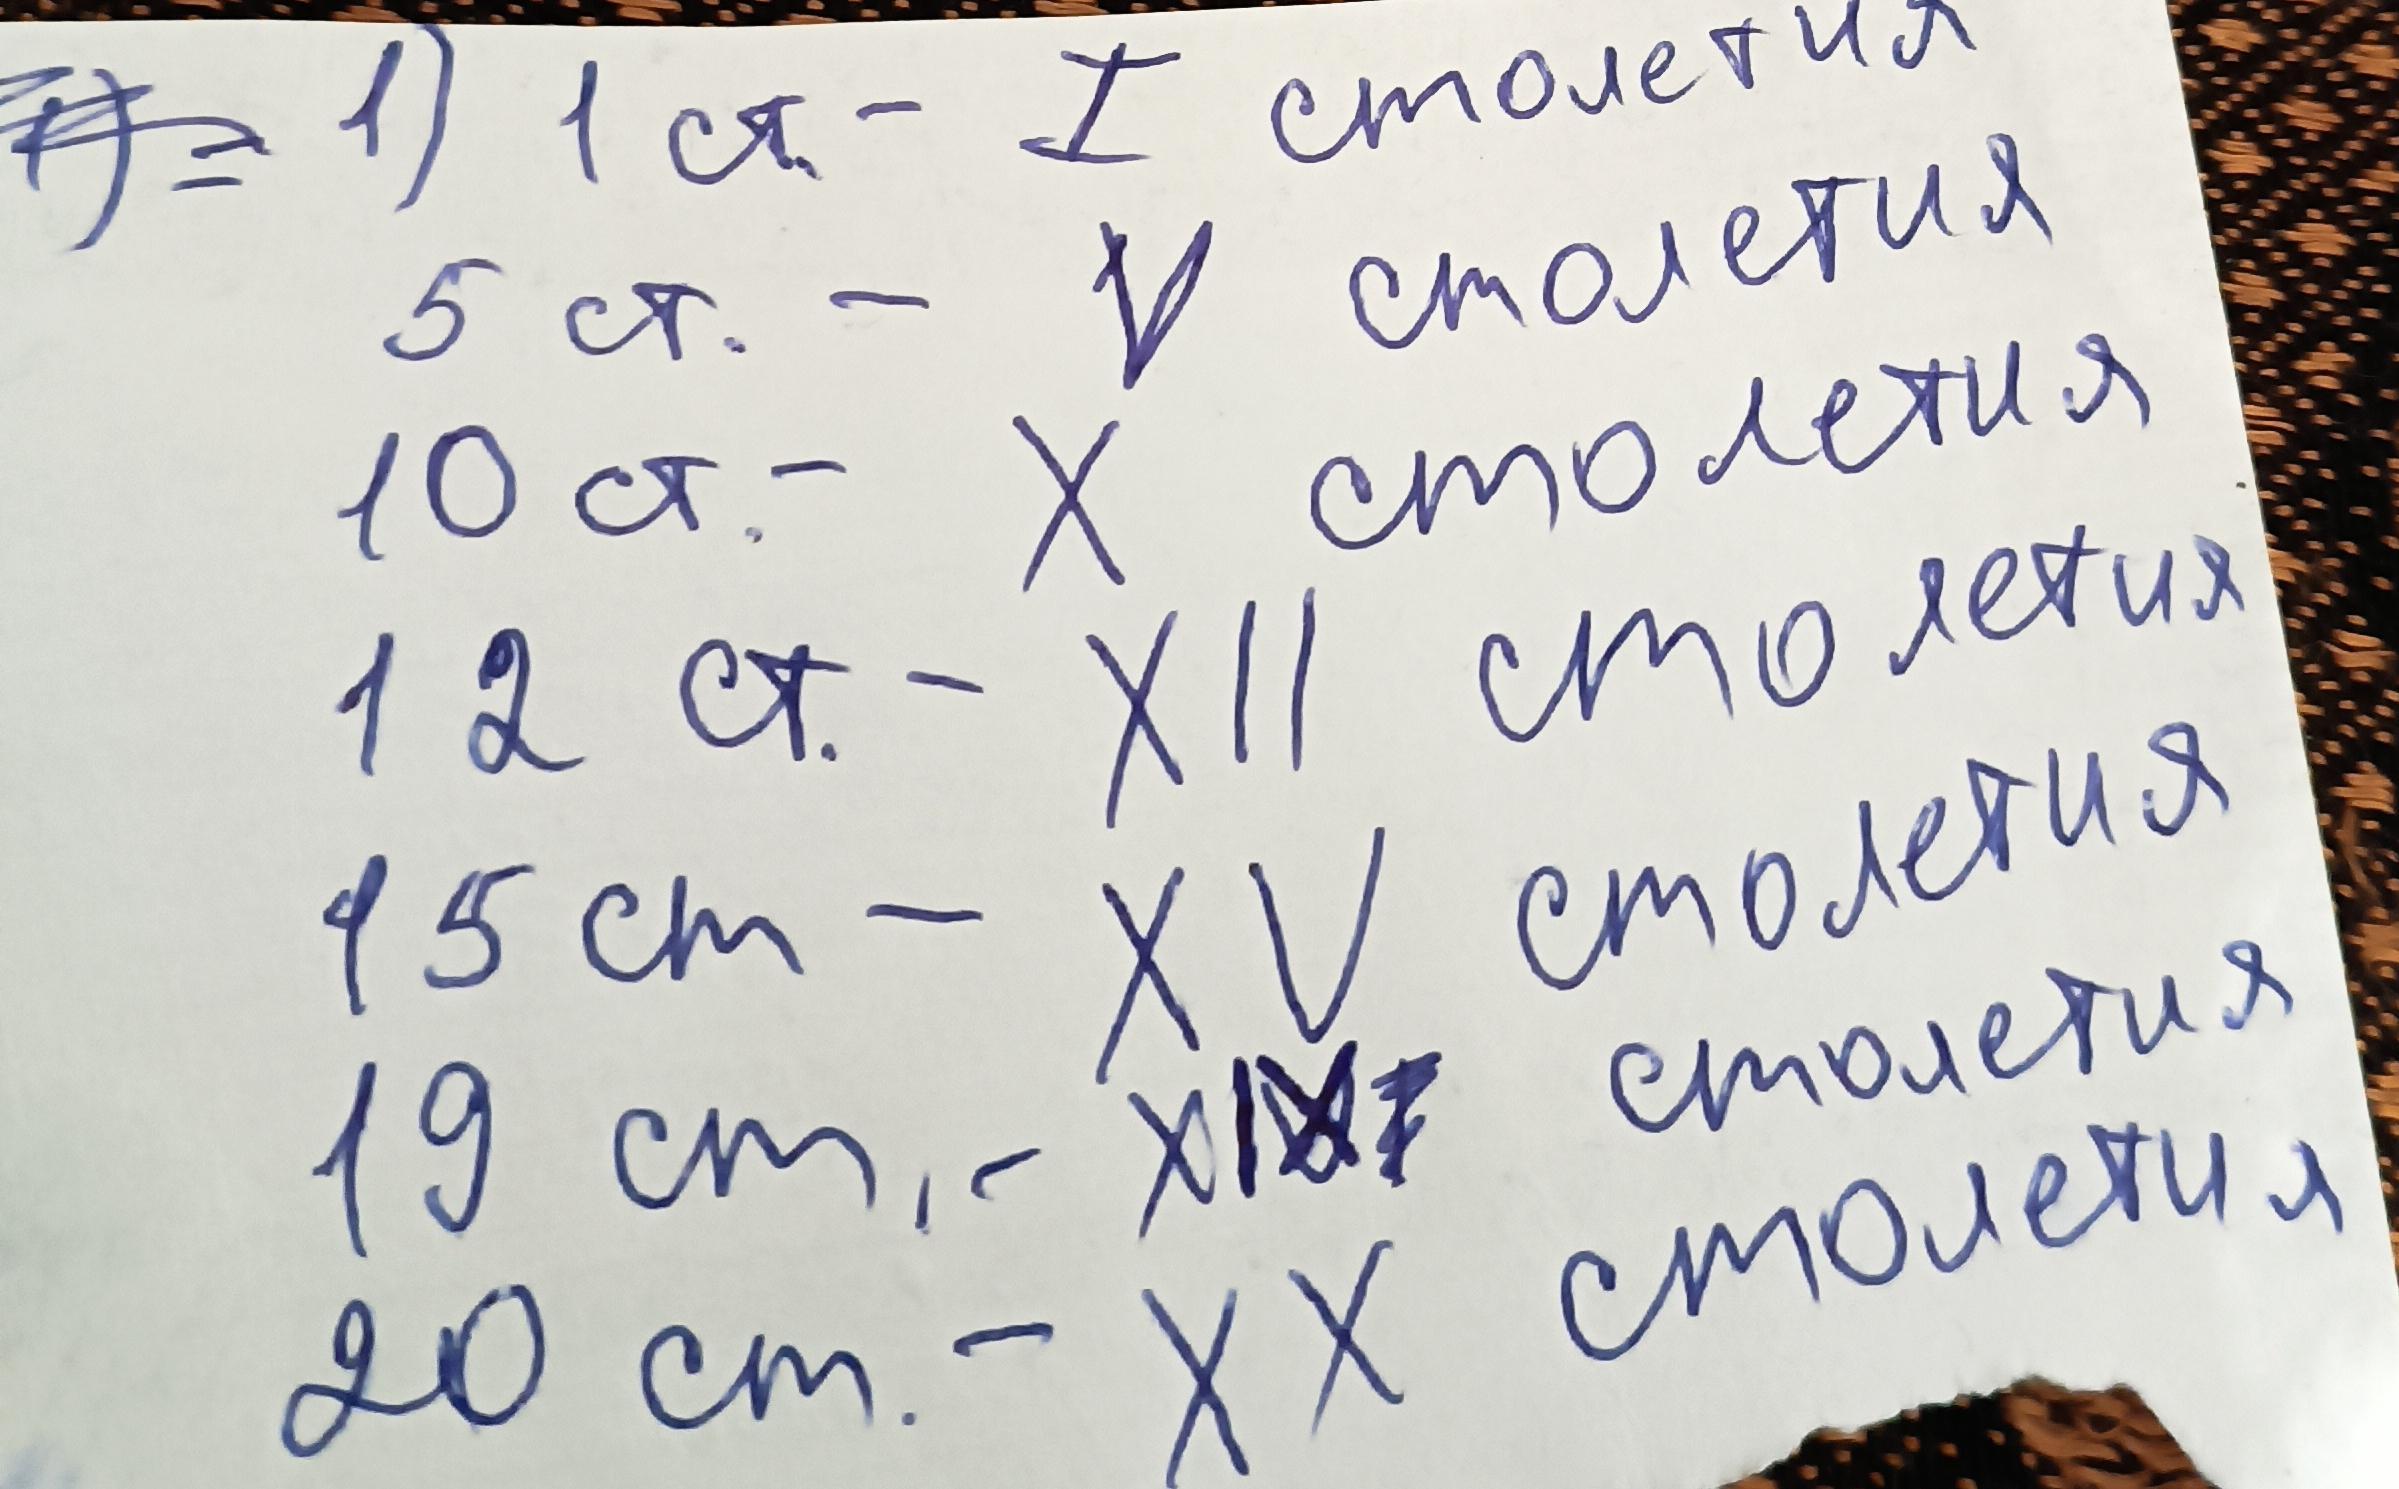 1) 1 ст. - I столетия
5 ст. - V столетия
10 ст. - X столетия
12 ст. - XII столетия
15 ст - XV столетия
19 ст. - XIX столетия
20 ст. - XX столетия